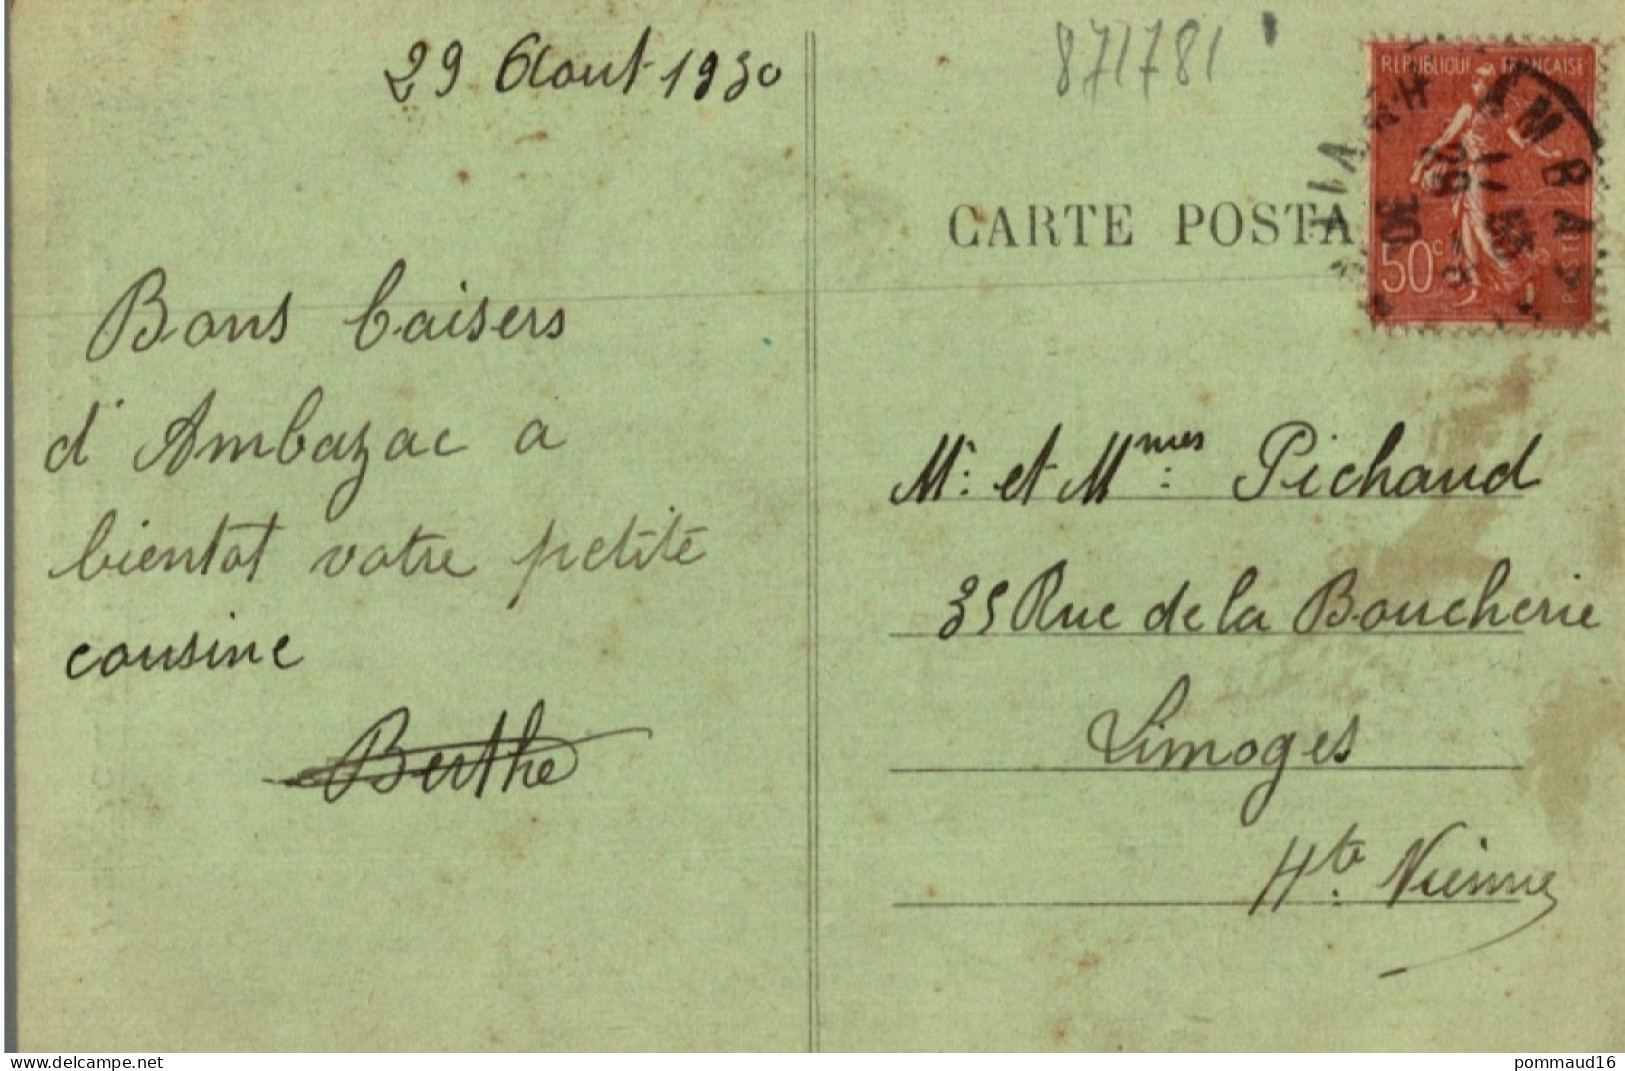 29 Aout 1930
Bons baisers
d'Ambazac a
bientot votre petite
cousine
Berthe
871781
CARTE POSTA
REPUBLIQUE FRANCAISE
50c
POSTES
AMBAZ
17 35
29 -8
30
Mr. et Mmes. Pichaud
35 Rue de la Boucherie
Limoges
Hte. Vienne
delcampe.net
pommaud16